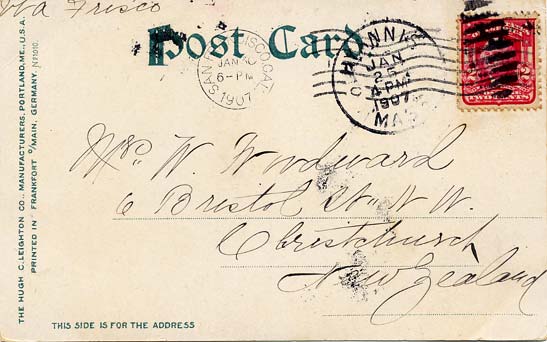 Via Frisco
Post Card
SAN FRANCISCO, CAL.
JAN 30
6-PM
1907
HYANNIS
JAN
25
4 PM
1907
MASS.
Mrs. W. Woodward
6 Bristol St. N.W.
Christchurch
New Zealand
THE HUGH C. LEIGHTON CO., MANUFACTURERS, PORTLAND, ME., U.S.A.
PRINTED IN FRANKFORT O/MAIN, GERMANY. Nº1010.
THIS SIDE IS FOR THE ADDRESS